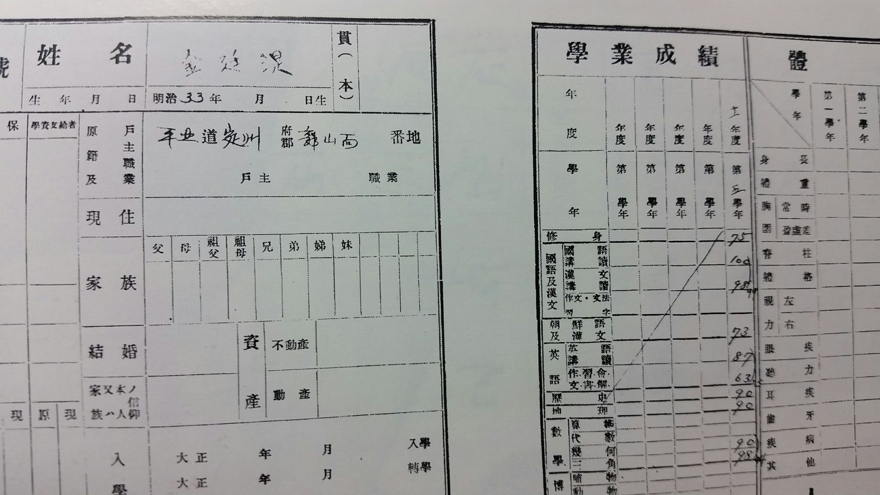 號 姓名 金廷湜 貫(本)
生年月日 明治33年 月 日生
保 學資支給者 原籍及 戶主職業 平北道定州 府郡 舞山面 番地
戶主 職業
現住
家族 父 母 祖父 祖母 兄 弟 姊 妹
結婚 資產 不動產
家族 又ハ 本人ノ信仰 動產
現 原 現
入學 大正 年 月 入學
大正 年 月 轉學
學業成績
年度 年度 年度 年度 年度 年度
學年 第 學年 第 學年 第 學年 第 學年 第 學年
修身 75
國語及漢文 國語講讀 100
漢文講讀 98
作文・文法
習字
朝鮮語及漢文 73
英語 英語講讀 87
作文.習字.會解. 63
歷史 90
地理 90
數學 算術
代數
幾何 90
三角 98
博 植物
動物
體
學年 第一學年 第二學年
身長
體重
胸圍 常時
盈虛差
脊柱
體格
視力 左
右
眼疾
聽力
耳疾
齒牙
疾病
其他